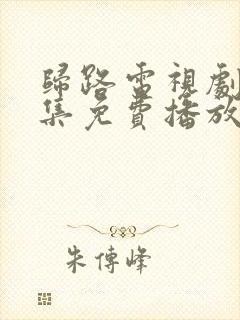 歸路雷視劇
集免費播放
朱傳峰